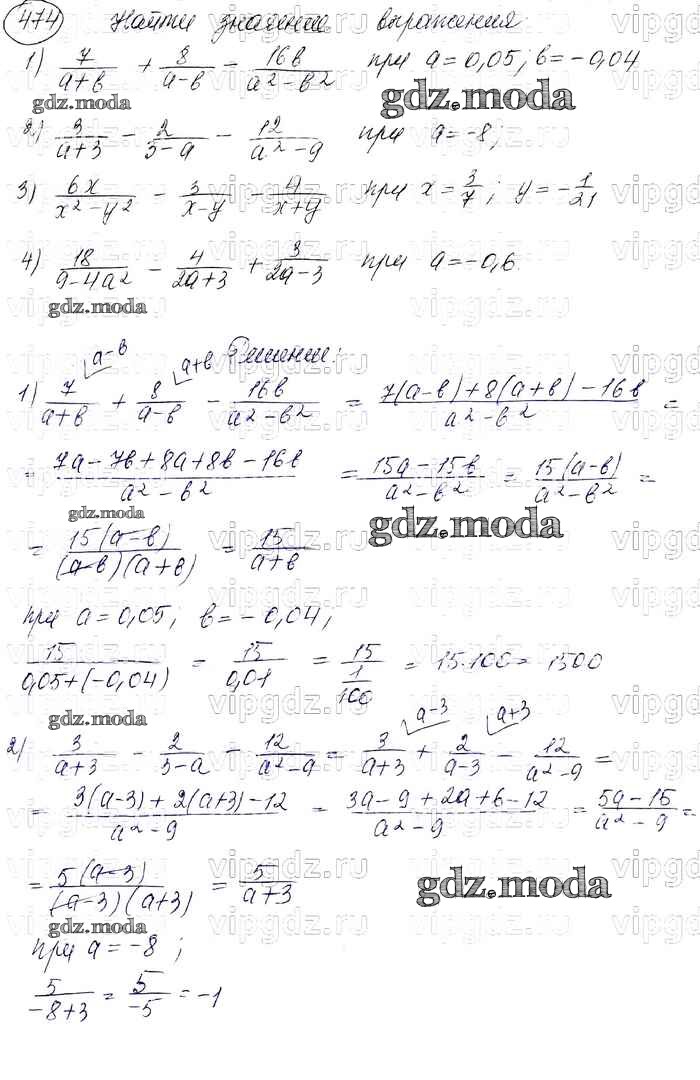 474 Найти значение выражения:
1) 7/(a+b) + 8/(a-b) - 16b/(a²-b²) при a=0,05; b=-0,04
2) 3/(a+3) - 2/(3-a) - 12/(a²-9) при a=-8;
3) 6x/(x²-y²) - 3/(x-y) - 4/(x+y) при x=3/7; y=-1/21
4) 18/(9-4a²) - 4/(2a+3) + 3/(2a-3) при a=-0,6.
gdz.moda
Решение:
1) 7/(a+b) + 8/(a-b) - 16b/(a²-b²) = (7(a-b)+8(a+b)-16b)/(a²-b²) =
= (7a-7b+8a+8b-16b)/(a²-b²) = (15a-15b)/(a²-b²) = 15(a-b)/(a²-b²) =
= 15(a-b)/((a-b)(a+b)) = 15/(a+b)
при a=0,05; b=-0,04;
15/(0,05+(-0,04)) = 15/0,01 = 15/(1/100) = 15·100=1500
2) 3/(a+3) - 2/(3-a) - 12/(a²-9) = 3/(a+3) + 2/(a-3) - 12/(a²-9) =
= (3(a-3)+2(a+3)-12)/(a²-9) = (3a-9+2a+6-12)/(a²-9) = (5a-15)/(a²-9) =
= 5(a-3)/((a-3)(a+3)) = 5/(a+3)
при a=-8;
5/(-8+3) = 5/(-5) = -1